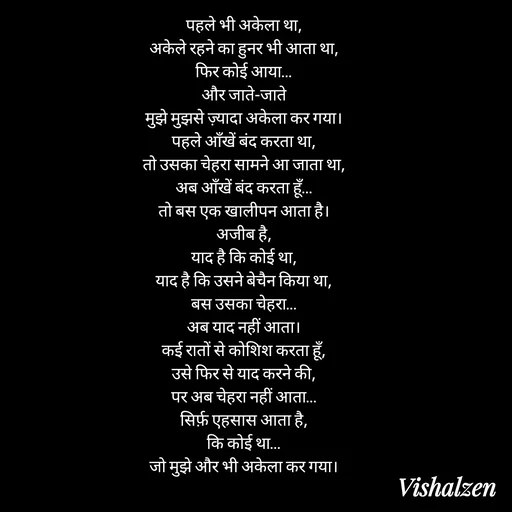 पहले भी अकेला था,
अकेले रहने का हुनर भी आता था,
फिर कोई आया...
और जाते-जाते
मुझे मुझसे ज़्यादा अकेला कर गया।
पहले आँखें बंद करता था,
तो उसका चेहरा सामने आ जाता था,
अब आँखें बंद करता हूँ...
तो बस एक खालीपन आता है।
अजीब है,
याद है कि कोई था,
याद है कि उसने बेचैन किया था,
बस उसका चेहरा...
अब याद नहीं आता।
कई रातों से कोशिश करता हूँ,
उसे फिर से याद करने की,
पर अब चेहरा नहीं आता...
सिर्फ़ एहसास आता है,
कि कोई था...
जो मुझे और भी अकेला कर गया।
Vishalzen